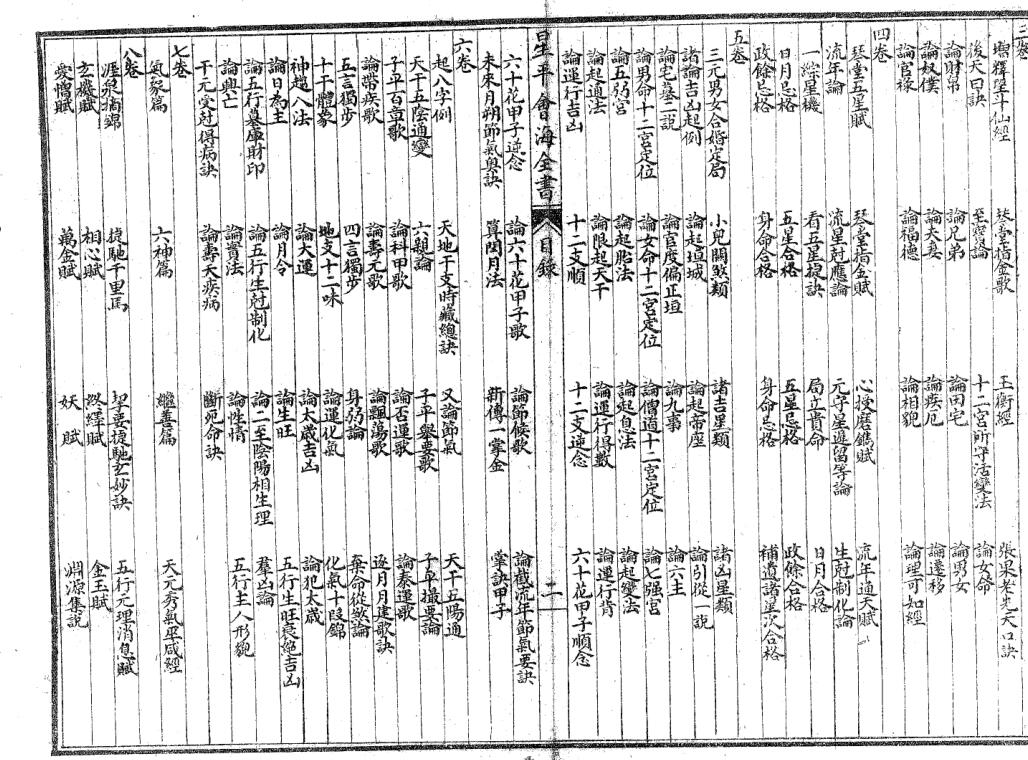 三卷
增釋壁斗仙經 琴堂指金歌 玉衡經 張果老先天口訣
後天口訣 至寶論 十二宮所守活變法 論女命
論財帛 論兄弟 論田宅 論男女
論奴僕 論夫妻 論疾厄 論遷移
論官祿 論福德 論相貌 論理可知經
四卷
琴堂五星賦 琴堂指金賦 心授磨鐫賦 流年通天賦
流年論 流星尅應論 元守星遲留等論 生尅制化論
一綜星機 看五星捷訣 局立貴命 日月合格
日月忌格 五星合格 五星忌格 政餘合格
政餘忌格 身命合格 身命忌格 補遺諸星次合格
五卷
三元男女合婚定局 小兒關煞類 諸吉星類 諸凶星類
諸論吉凶起例 論起垣城 論起帝座 論引從一說
論宅墓二說 論官度偏正垣 論九事 論六主
論男命十二宮定位 論女命十二宮定位 論僧道十二宮定位 論七强宮
論五弱宮 論起胎法 論起息法 論起變法
論起通法 論限起天干 論運行得數 論運行背
論運行吉凶 十二支順 十二支逆念 六十花甲子順念
星平會海全書 目錄 二
六十花甲子逆念 論六十花甲子歌 論節候歌 論截流年節氣要訣
未來月朔節氣奧訣 算閏月法 新傳一掌金 掌訣甲子
六卷
起八字例 天地干支時藏總訣 又論節氣 天干五陽通
天干五陰通變 六親論 子平舉要歌 子平撮要論
子平百章歌 論科甲歌 論否運歌 論泰運歌
論帶疾歌 論壽元歌 論飄蕩歌 逐月月建歌訣
五言獨步 四言獨步 身弱論 棄命從煞論
十干體象 地支十二咏 論運化氣 化氣十段錦
神趣八法 論大運 論太歲吉凶 論犯太歲
論日為主 論月令 論生旺 五行生旺衰絕吉凶
論五行墓庫財印 論五行生尅制化 論二至陰陽相生理 羣凶論
論興亡 論寶法 論性情 五行主人形貌
干元受尅得病訣 論壽夭疾病 斷死命訣
七卷
氣象篇 六神篇 繼善篇 天元秀氣巫咸經
八卷
涯泉摘錦 捷馳千里馬 捷馳玄妙訣 五行元理消息賦
玄機賦 相心賦 絡繹賦 金玉賦
愛憎賦 萬金賦 妖賦 淵源集說